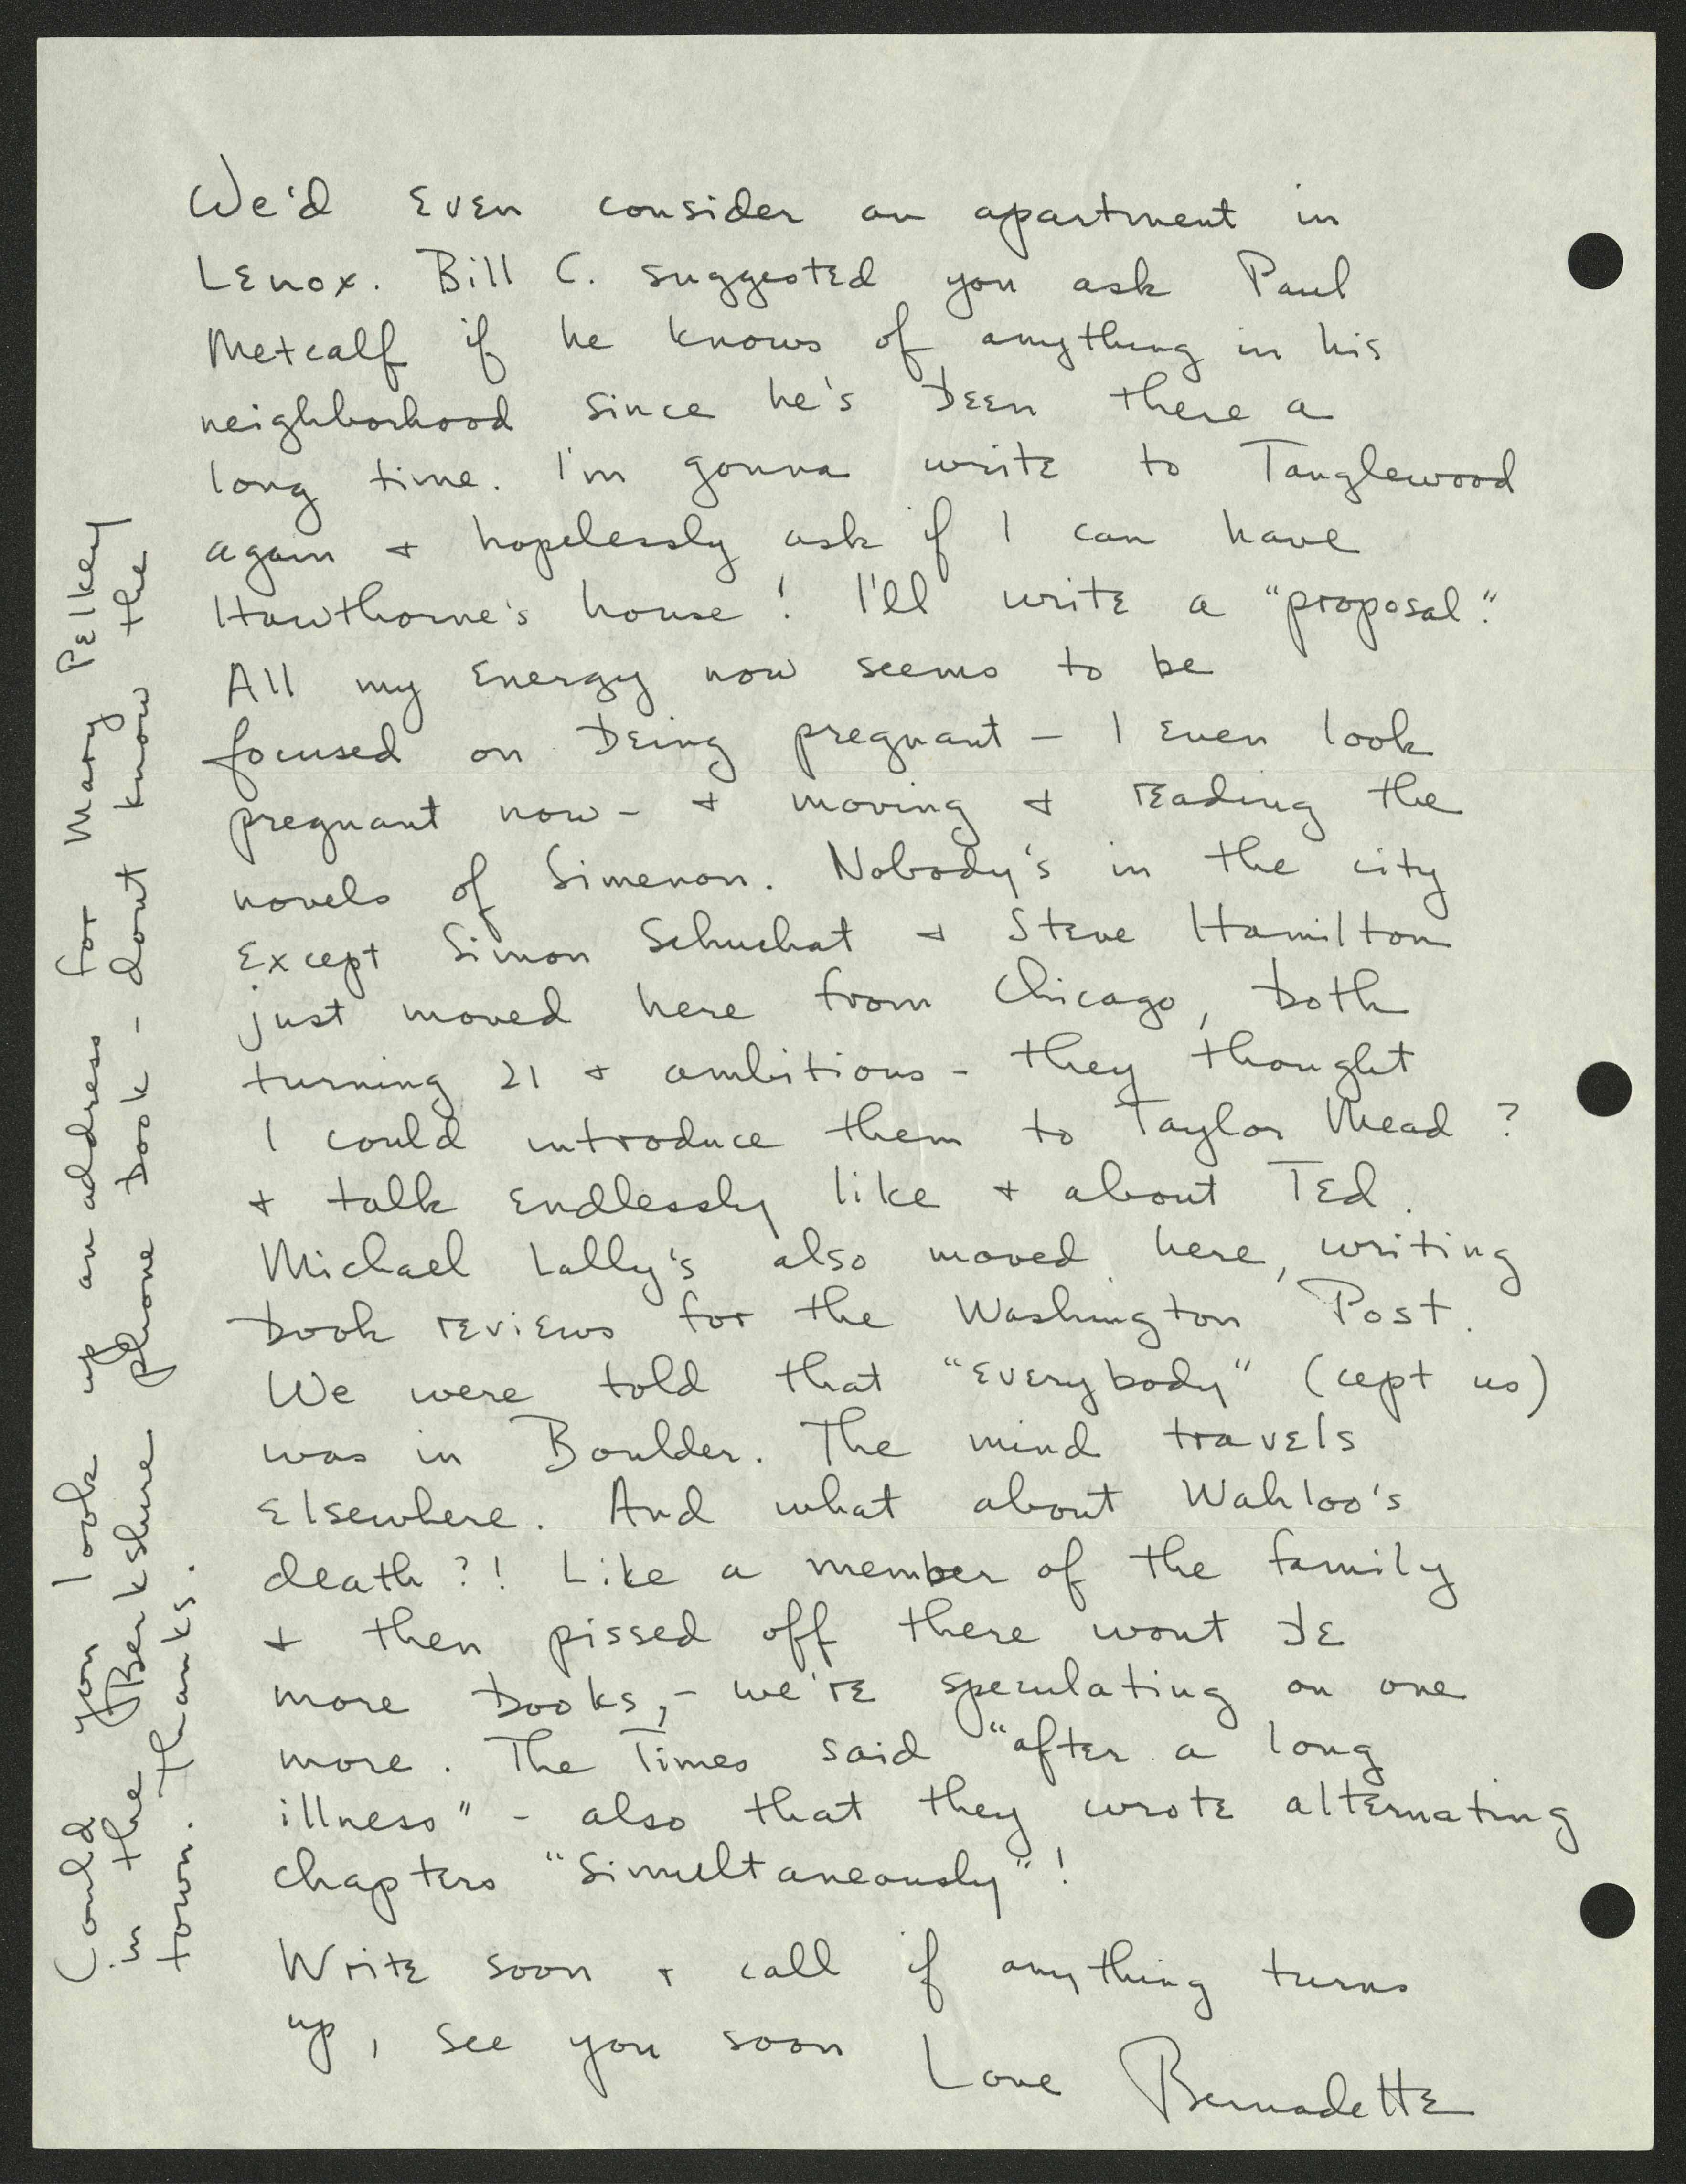 We'd even consider an apartment in
Lenox. Bill C. suggested you ask Paul
Metcalf if he knows of anything in his
neighborhood since he's been there a
long time. I'm gonna write to Tanglewood
again + hopelessly ask if I can have
Hawthorne's house! I'll write a "proposal."
All my energy now seems to be
focused on being pregnant – I even look
pregnant now – + moving + reading the
novels of Simenon. Nobody's in the city
except Simon Schuchat + Steve Hamilton
just moved here from Chicago, both
turning 21 + ambitious – they thought
I could introduce them to Taylor Mead?
+ talk endlessly like + about Ted.
Michael Lally's also moved here, writing
book reviews for the Washington Post.
We were told that "everybody" (cept us)
was in Boulder. The mind travels
elsewhere. And what about Wahloo's
death?! Like a member of the family
+ then pissed off there wont be
more books, – we're speculating on one
more. The Times said "after a long
illness" – also that they wrote alternating
chapters "simultaneously"!
Write soon + call if anything turns
up, see you soon
Love Bernadette
Could you look up an address for Mary Pelkey
in the Berkshire phone book – dont know the
town. thanks.